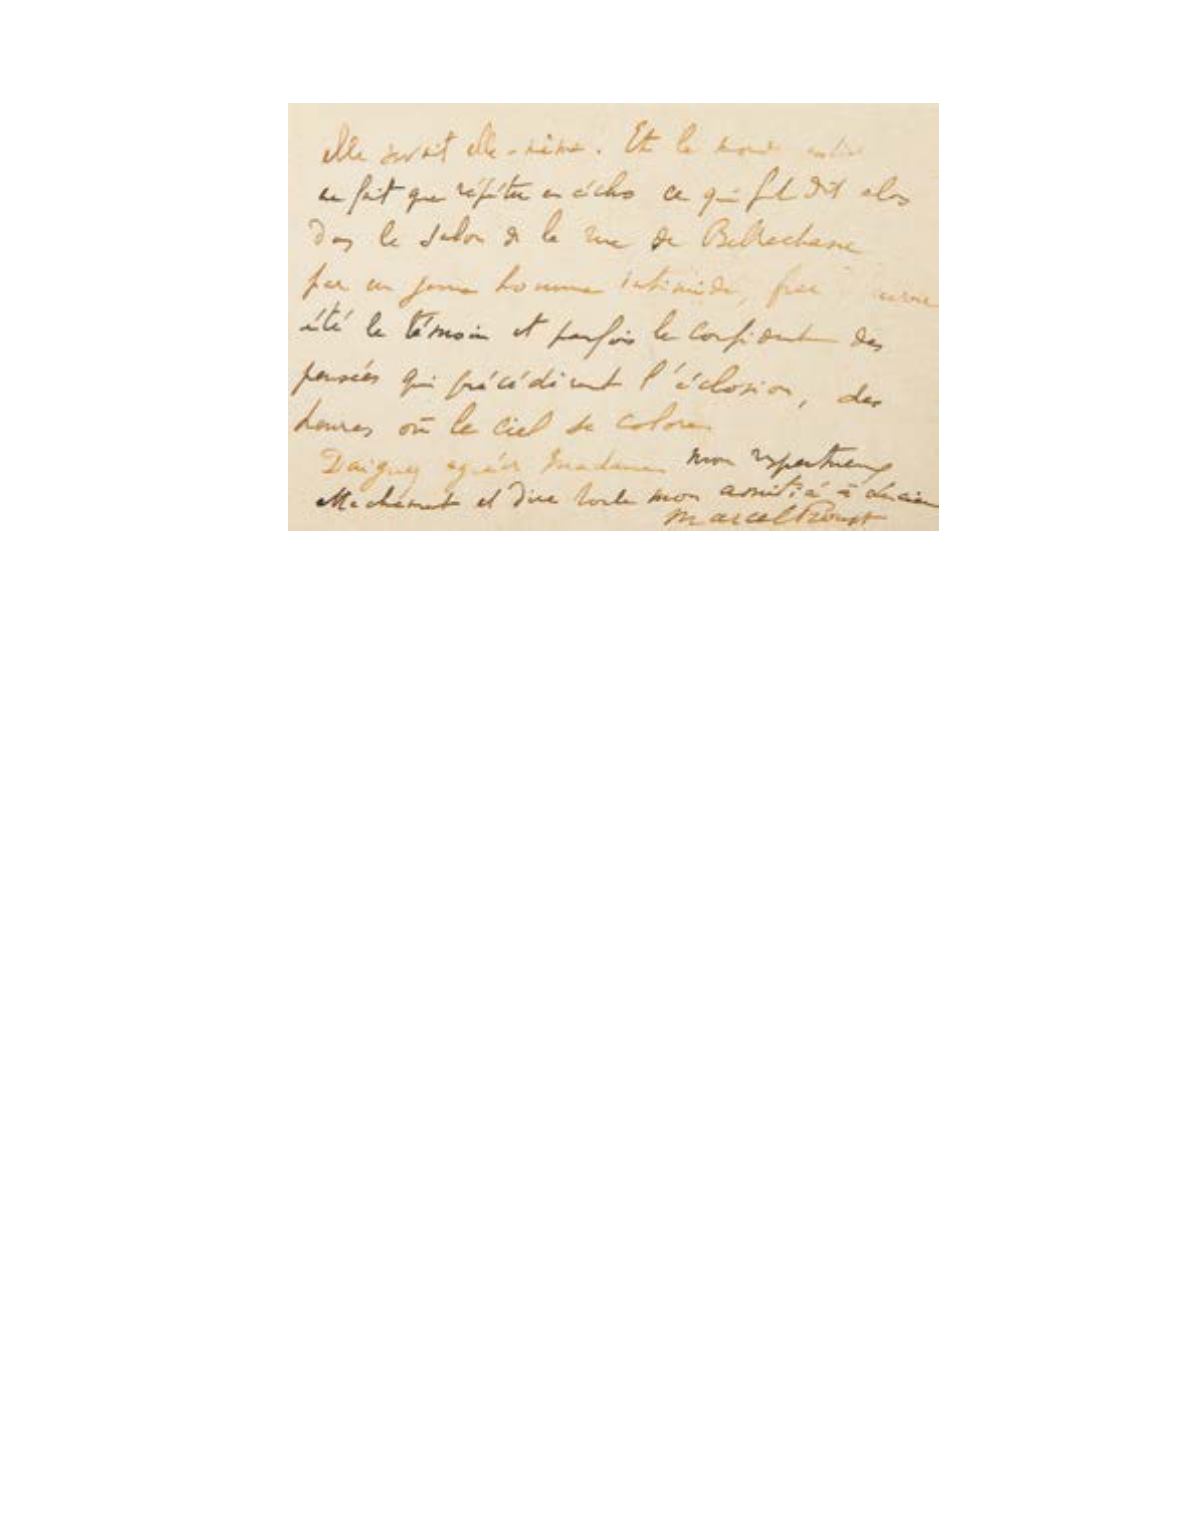 elle serait elle-même. Et le monde entier
ne fait que répéter en écho ce qui fut dit alors
dans le salon de la rue de Bellechasse
par un jeune homme intimidé, fier
été le témoin et parfois le confident des
pensées qui précédèrent l'éclosion, des
heures où le ciel se colore.
Daignez agréer Madame mon respectueux
attachement et dire toute mon amitié à Lucien
Marcel Proust